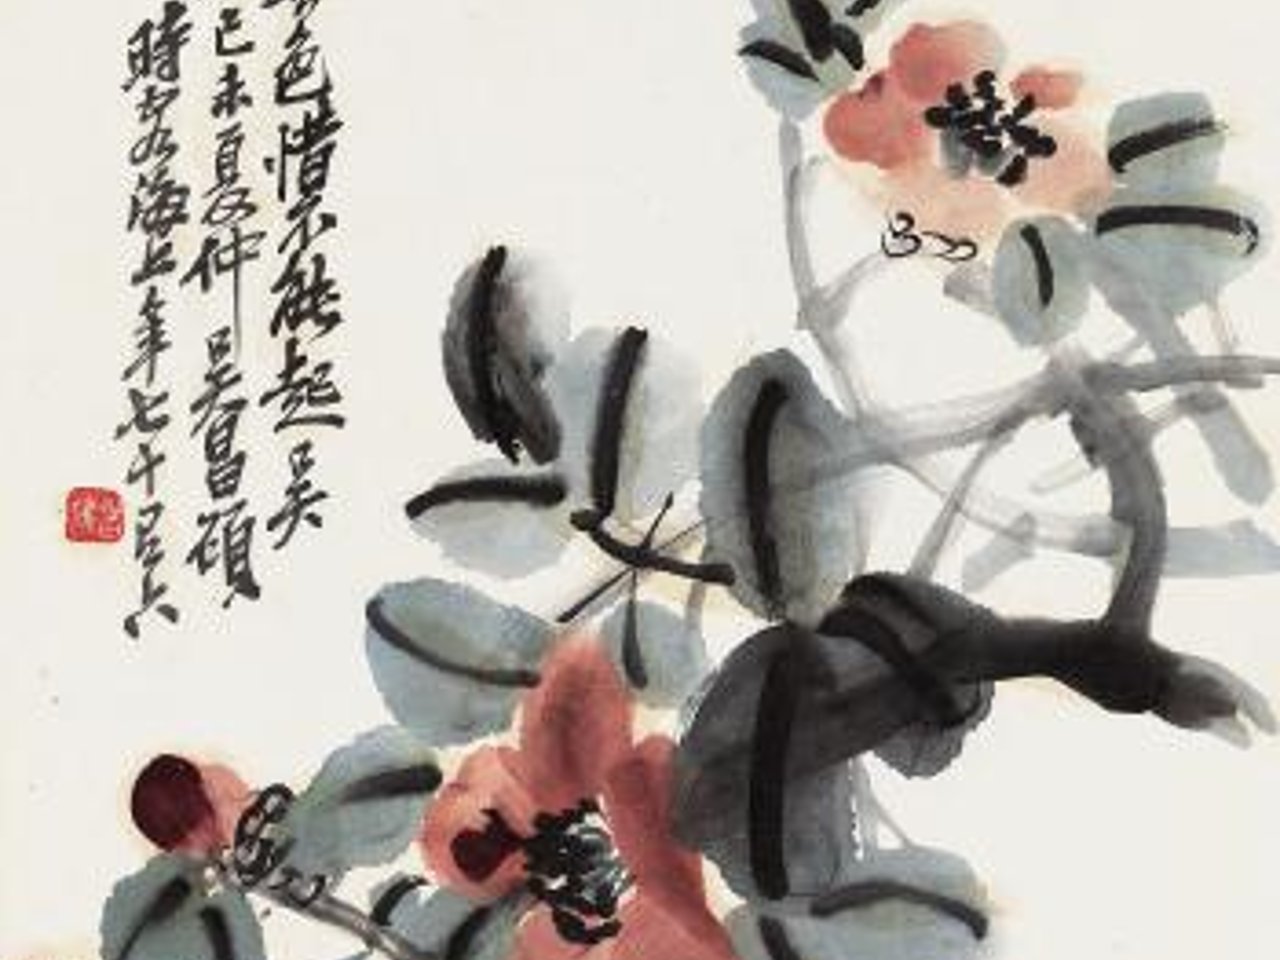 色惜不能起吴
己未夏仲吴昌碩
時客海上年七十有六